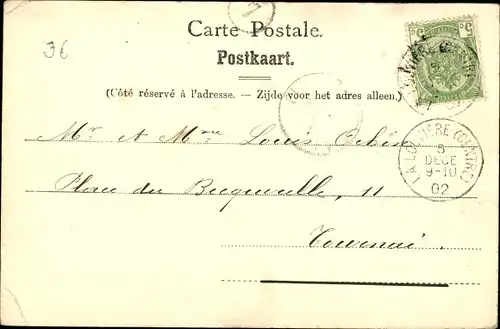 36
Carte Postale.
Postkaart.
(Côté réservé à l'adresse. — Zijde voor het adres alleen.)
Mr et Mme Louis
Place du 11
LA LOUVIÈRE (CENTRE)
5
DECE
9-10
02
5 5